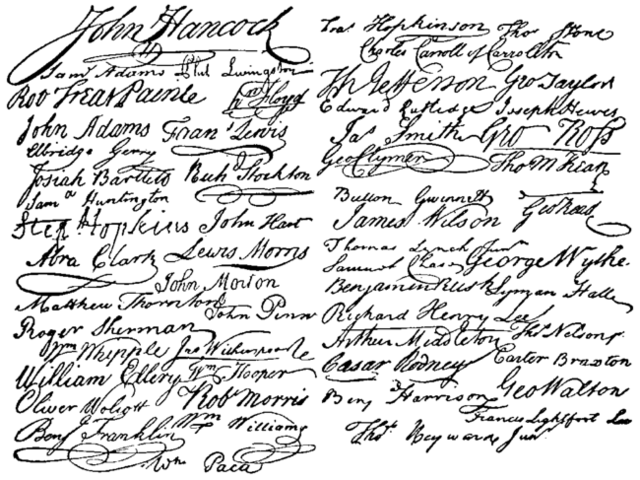 John Hancock
Sam Adams Phil Livingston
Rob Treat Paine Wm Floyd
John Adams Frans Lewis
Elbridge Gerry
Josiah Bartlett Rich Stockton
Sam Huntington
Step Hopkins John Hart
Abra Clark Lewis Morris
John Morton
Matthew Thornton
John Penn
Roger Sherman
Wm Whipple Jno Witherspoon
William Ellery Wm Hooper
Oliver Wolcott Robt Morris
Benj Franklin Wm Williams
Wm Paca
Fras Hopkinson Thos Stone
Charles Carroll of Carrollton
Th Jefferson Geo Taylor
Edward Rutledge Joseph Hewes
Jas Smith Geo Ross
Geo Clymer Tho M Kean
Button Gwinnett Geo Read
James Wilson
Thomas Lynch Junr
Samuel Chase George Wythe
Benjamin Rush Lyman Hall
Richard Henry Lee
Arthur Middleton Thos Nelson jr
Caesar Rodney Carter Braxton
Benj Harrison Geo Walton
Francis Lightfoot Lee
Thos Heyward Junr